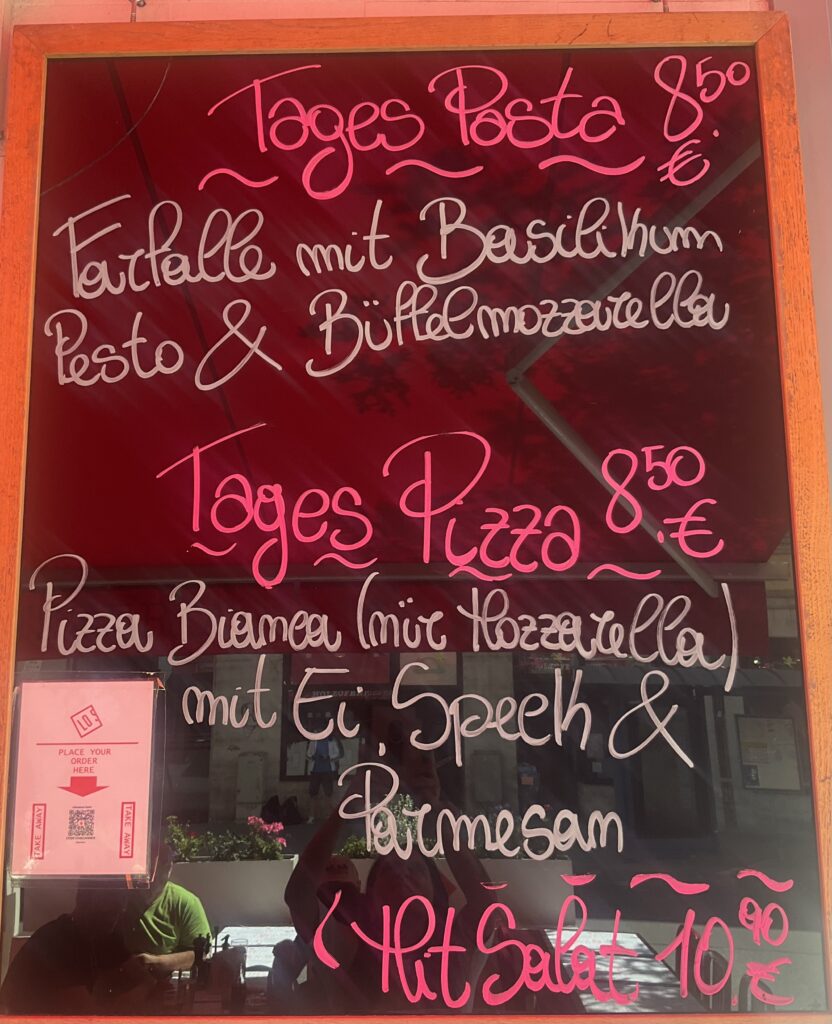 Tages Pasta 8.50 €
Farfalle mit Basilikum
Pesto & Büffelmozzarella
Tages Pizza 8.50 €
Pizza Bianca (nür Mozzarella)
mit Ei, Speck &
Parmesan
LO
PLACE YOUR
ORDER
HERE
TAKE AWAY
TAKE AWAY
(Mit Salat 10.90 €